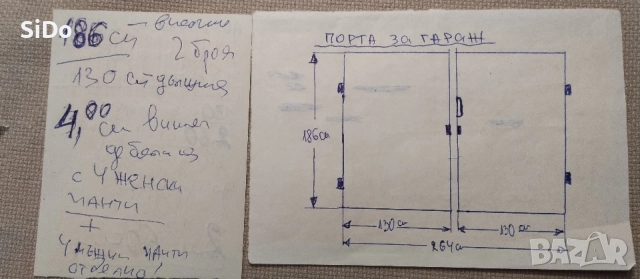 SiDo
186 см височина
2 броя
130 см дължина
4,00 см винкел
дебелина
с 4 женски
панти
+
4 мъжки панти
отделно!
ПОРТА ЗА ГАРАЖ
186см
130 см
130 см
264см
bazar